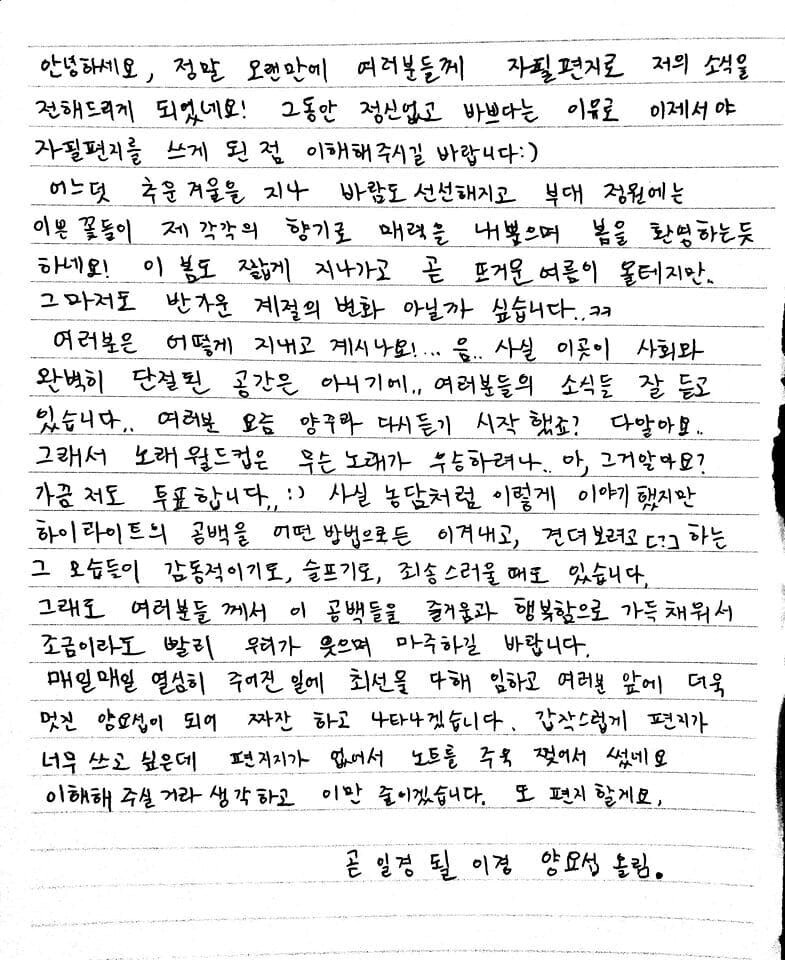 안녕하세요, 정말 오랜만에 여러분들께 자필편지로 저의 소식을
전해드리게 되었네요! 그동안 정신없고 바쁘다는 이유로 이제서야
자필편지를 쓰게 된 점 이해해주시길 바랍니다:)
어느덧 추운 겨울을 지나 바람도 선선해지고 부대 정원에는
이쁜 꽃들이 제 각각의 향기로 매력을 내뿜으며 봄을 환영하는듯
하네요! 이 봄도 짧게 지나가고 곧 뜨거운 여름이 올테지만..
그마저도 반가운 계절의 변화 아닐까 싶습니다..ㅋㅋ
여러분은 어떻게 지내고 계시나요!... 음.. 사실 이곳이 사회와
완벽히 단절된 공간은 아니기에.. 여러분들의 소식들 잘 듣고
있습니다.. 여러분 요즘 양주라 다시듣기 시작 했죠? 다알아요..
그래서 노래 월드컵은 무슨 노래가 우승하려나.. 아, 그거알아요?
가끔 저도 투표합니다..:) 사실 농담처럼 이렇게 이야기 했지만
하이라이트의 공백을 어떤 방법으로든 이겨내고, 견뎌보려고 [?] 하는
그 모습들이 감동적이기도, 슬프기도, 죄송스러울 때도 있습니다.
그래도 여러분들 께서 이 공백들을 즐거움과 행복함으로 가득 채워서
조금이라도 빨리 우리가 웃으며 마주하길 바랍니다.
매일매일 열심히 주어진 일에 최선을 다해 임하고 여러분 앞에 더욱
멋진 양요섭이 되어 짜잔 하고 나타나겠습니다. 갑작스럽게 편지가
너무 쓰고 싶은데 편지지가 없어서 노트를 주욱 찢어서 썼네요
이해해 주실 거라 생각하고 이만 줄이겠습니다. 또 편지 할게요.
곧 일경 될 이경 양요섭 올림.